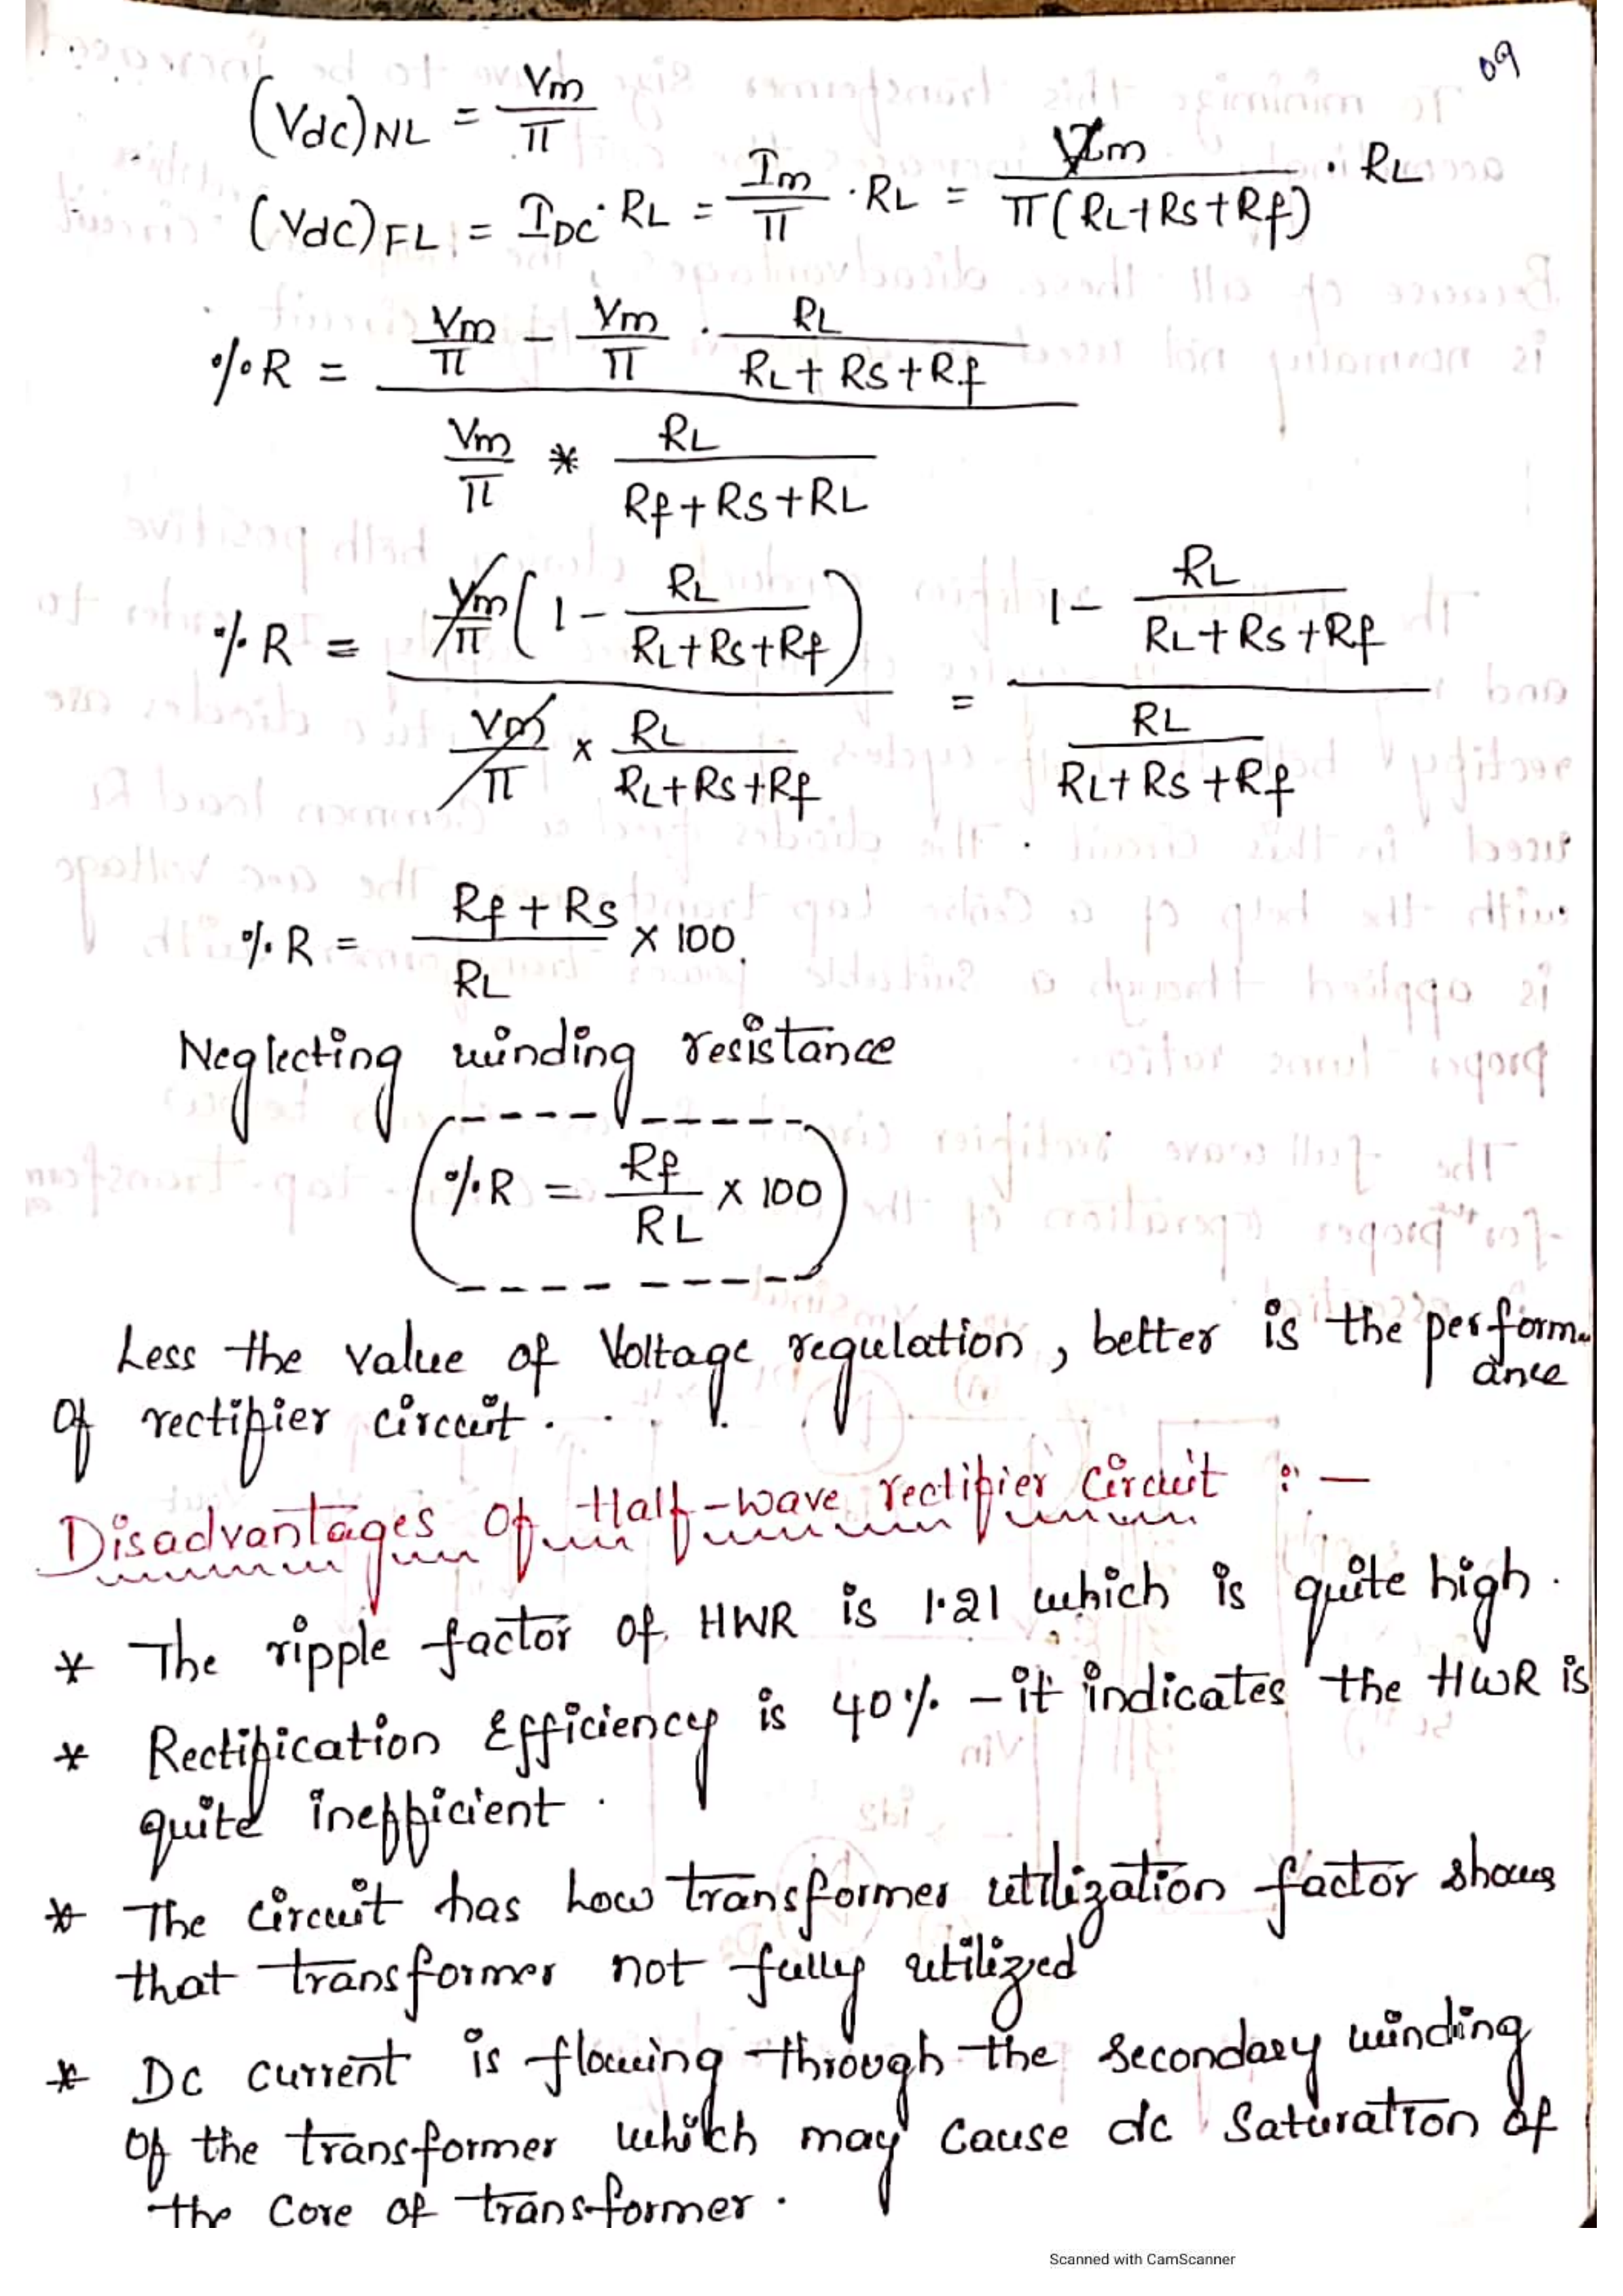 09
(Vdc)NL = Vm/π
(Vdc)FL = IDC · RL = Im/π · RL = Vm/π(RL+Rs+Rf) · RL
%R = (Vm/π − Vm/π · RL/(RL+Rs+Rf)) / (Vm/π * RL/(Rf+Rs+RL))
%R = (Vm/π (1 − RL/(RL+Rs+Rf))) / (Vm/π x RL/(RL+Rs+Rf)) = (1 − RL/(RL+Rs+Rf)) / (RL/(RL+Rs+Rf))
%R = (Rf+Rs)/RL x 100.
Neglecting winding resistance
%R = Rf/RL x 100
Less the value of Voltage regulation, better is the performance
of rectifier circuit.
Disadvantages of Half-wave rectifier circuit :-
* The ripple factor of HWR is 1.21 which is quite high.
* Rectification Efficiency is 40% - it indicates the HWR is
quite inefficient.
* The circuit has low transformer utilization factor shows
that transformer not fully utilized
* Dc current is flowing through the secondary winding
of the transformer which may cause dc saturation of
the core of transformer.
Scanned with CamScanner